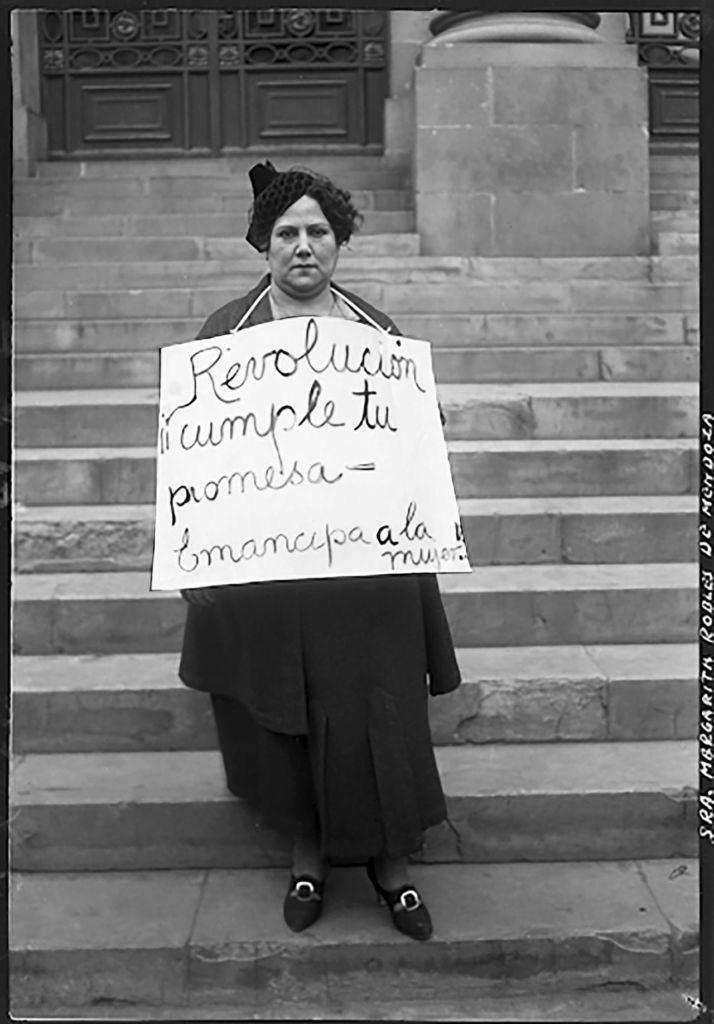 Revolución
¡¡cumple tu
promesa—
Emancipa a la
mujer!!
SRA. MARGARITA ROBLES DE MENDOZA